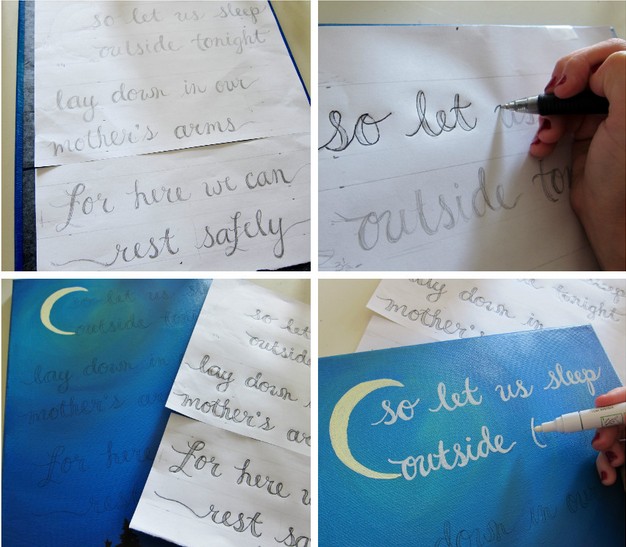 so let us sleep
outside tonight
lay down in our
mother's arms
For here we can
rest safely
so let us
outside ton
so let us
outside tonight
lay down in
mother's ar
for here
re
so let
outside
lay down
mother's ar
For here w
rest sa
lay down in
mother's
tonight
so let us sleep
outside t
down in ou